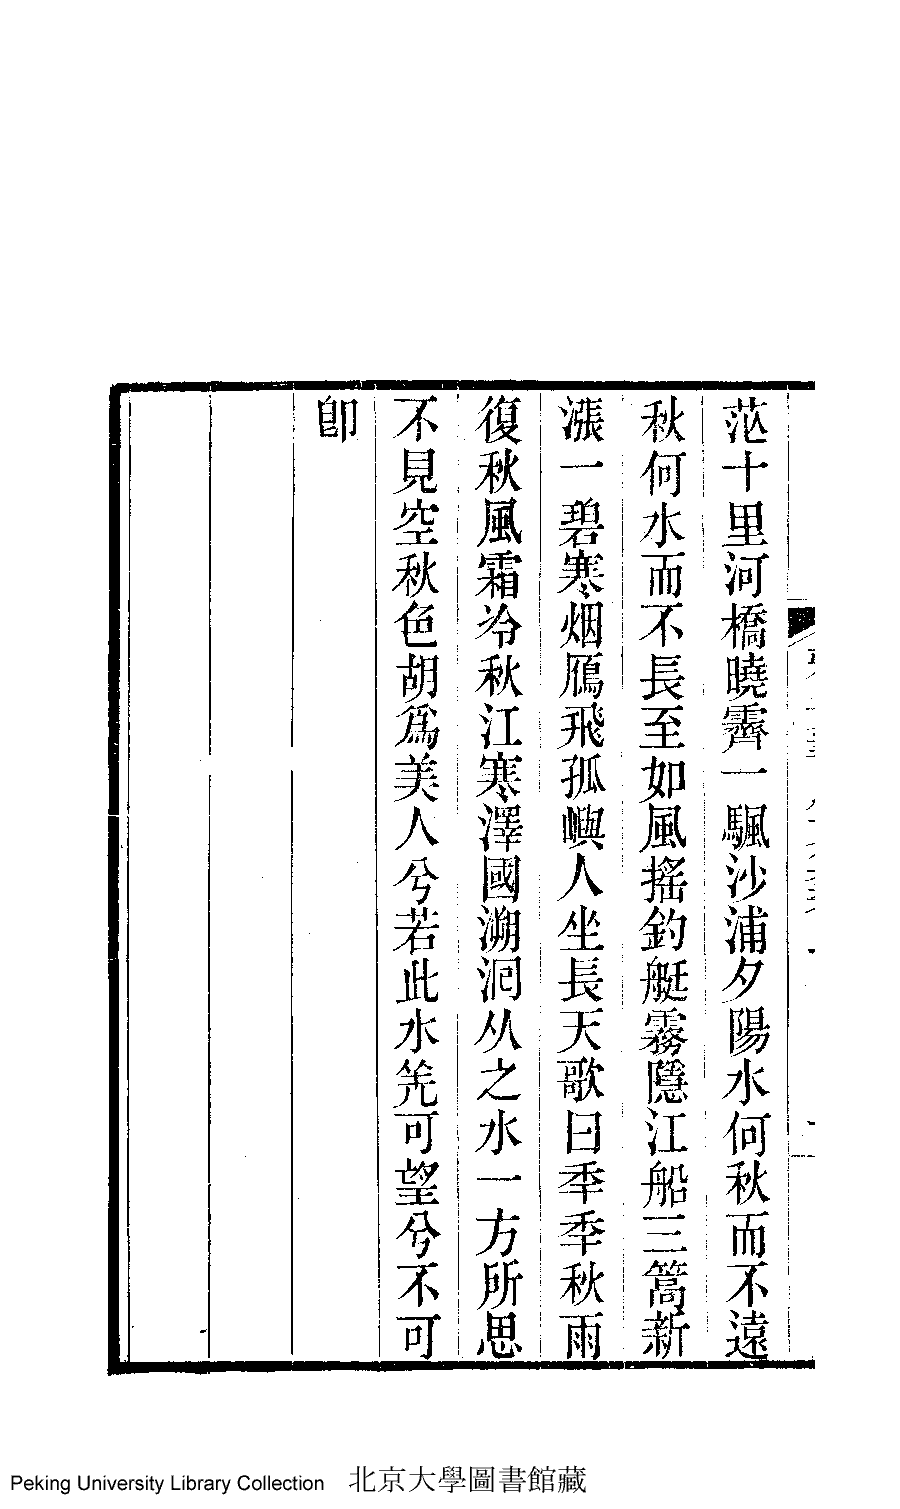 茫十里河橋曉霽一颿沙浦夕陽水何秋而不遠
秋何水而不長至如風搖釣艇霧隱江船三篙新
漲一碧寒烟鴈飛孤嶼人坐長天歌曰秊秊秋雨
復秋風霜冷秋江寒澤國溯洄从之水一方所思
不見空秋色胡爲美人兮若此水羌可望兮不可
卽
Peking University Library Collection 北京大學圖書館藏